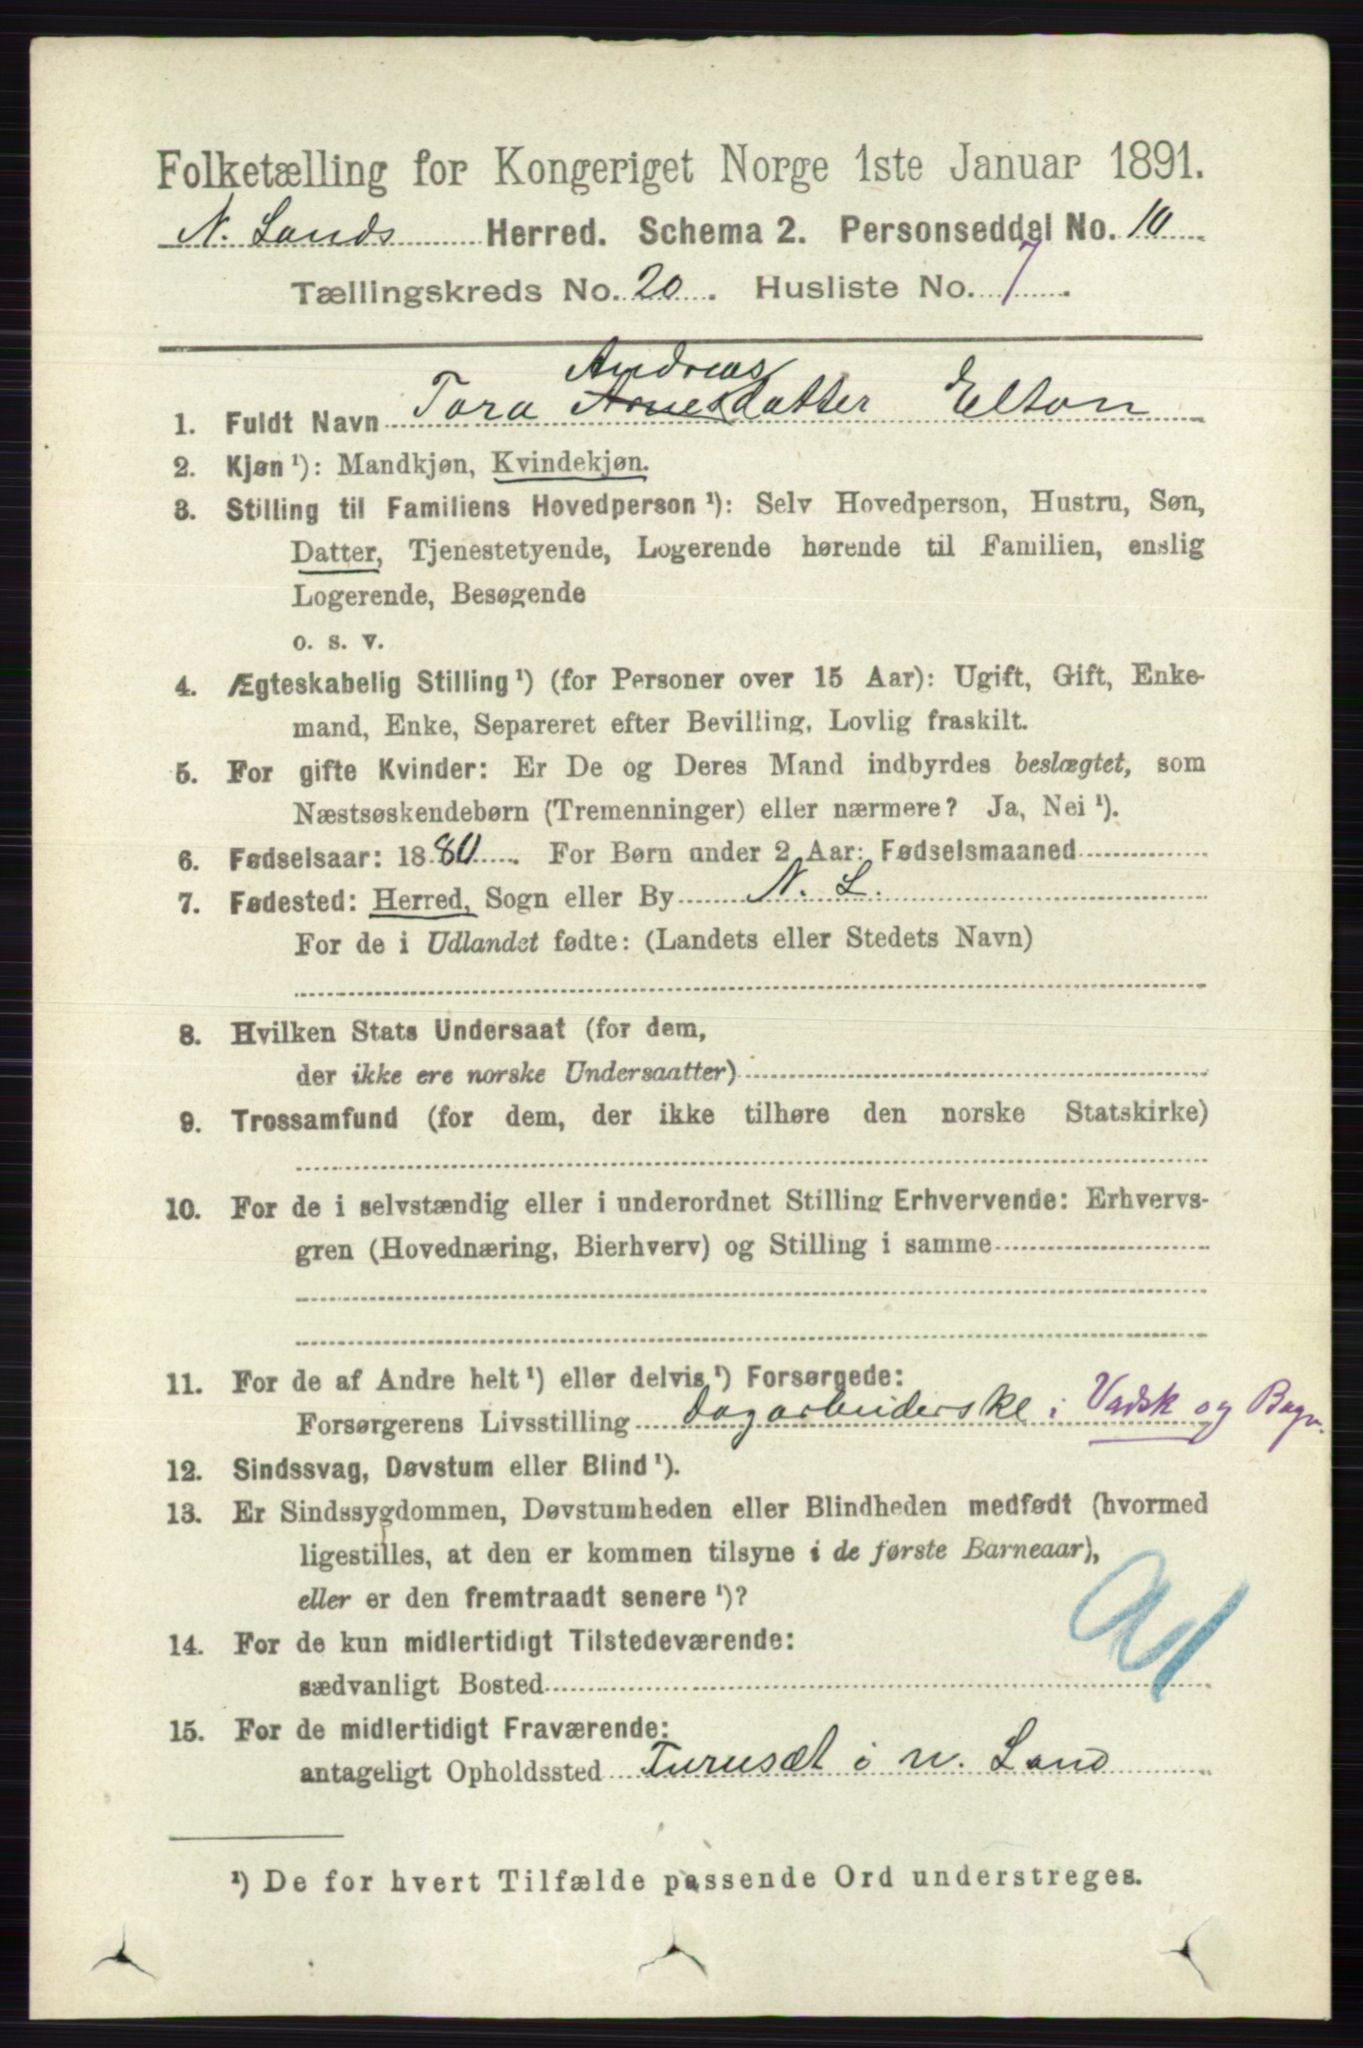 Folketælling for Kongeriget Norge 1ste Januar 1891.
N. Lands Herred. Schema 2. Personseddel No. 10
Tællingskreds No. 20. Husliste No. 7.
Andreas
1. Fuldt Navn Tora Arnesdatter Elton
2. Kjøn ¹): Mandkjøn, Kvindekjøn.
3. Stilling til Familiens Hovedperson ¹): Selv Hovedperson, Hustru, Søn,
Datter, Tjenestetyende, Logerende hørende til Familien, enslig
Logerende, Besøgende
o. s. v.
4. Ægteskabelig Stilling ¹) (for Personer over 15 Aar): Ugift, Gift, Enke-
mand, Enke, Separeret efter Bevilling, Lovlig fraskilt.
5. For gifte Kvinder: Er De og Deres Mand indbyrdes beslægtet, som
Næstsøskendebørn (Tremenninger) eller nærmere? Ja, Nei ¹).
6. Fødselsaar: 1880. For Børn under 2 Aar: Fødselsmaaned
7. Fødested: Herred, Sogn eller By N. L.
For de i Udlandet fødte: (Landets eller Stedets Navn)
8. Hvilken Stats Undersaat (for dem,
der ikke ere norske Undersaatter)
9. Trossamfund (for dem, der ikke tilhøre den norske Statskirke)
10. For de i selvstændig eller i underordnet Stilling Erhvervende: Erhvervs-
gren (Hovednæring, Bierhverv) og Stilling i samme
11. For de af Andre helt ¹) eller delvis ¹) Forsørgede:
Forsørgerens Livsstilling Dagarbeiderske i Vadsk og Bagn.
12. Sindssvag, Døvstum eller Blind ¹).
13. Er Sindssygdommen, Døvstumheden eller Blindheden medfødt (hvormed
ligestilles, at den er kommen tilsyne i de første Barneaar),
eller er den fremtraadt senere ¹)?
14. For de kun midlertidigt Tilstedeværende:
sædvanligt Bosted
15. For de midlertidigt Fraværende:
antageligt Opholdssted Turusæt i N. Land
¹) De for hvert Tilfælde passende Ord understreges.